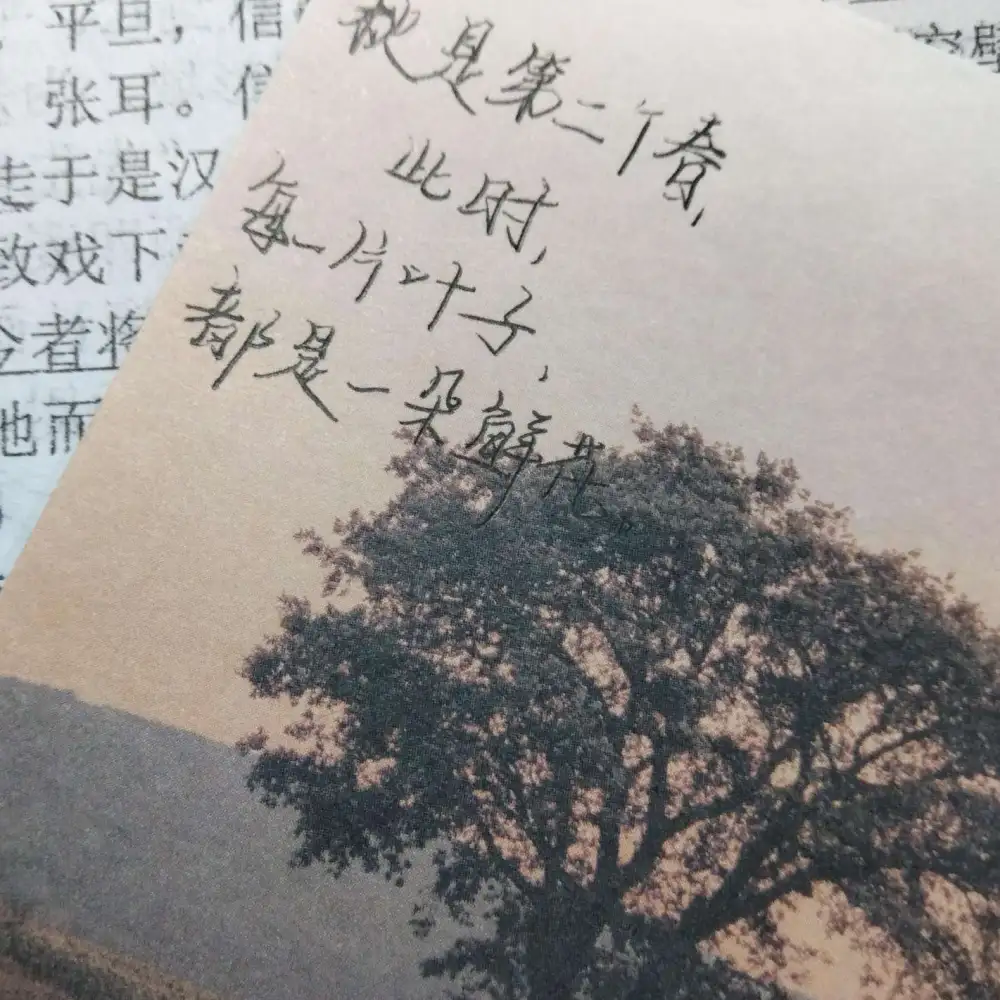 秋是第二个春,
此时,
每一片叶子,
都是一朵鲜花。
平旦，信
张耳。信
走于是汉
致戏下
今者将
地而
空壁